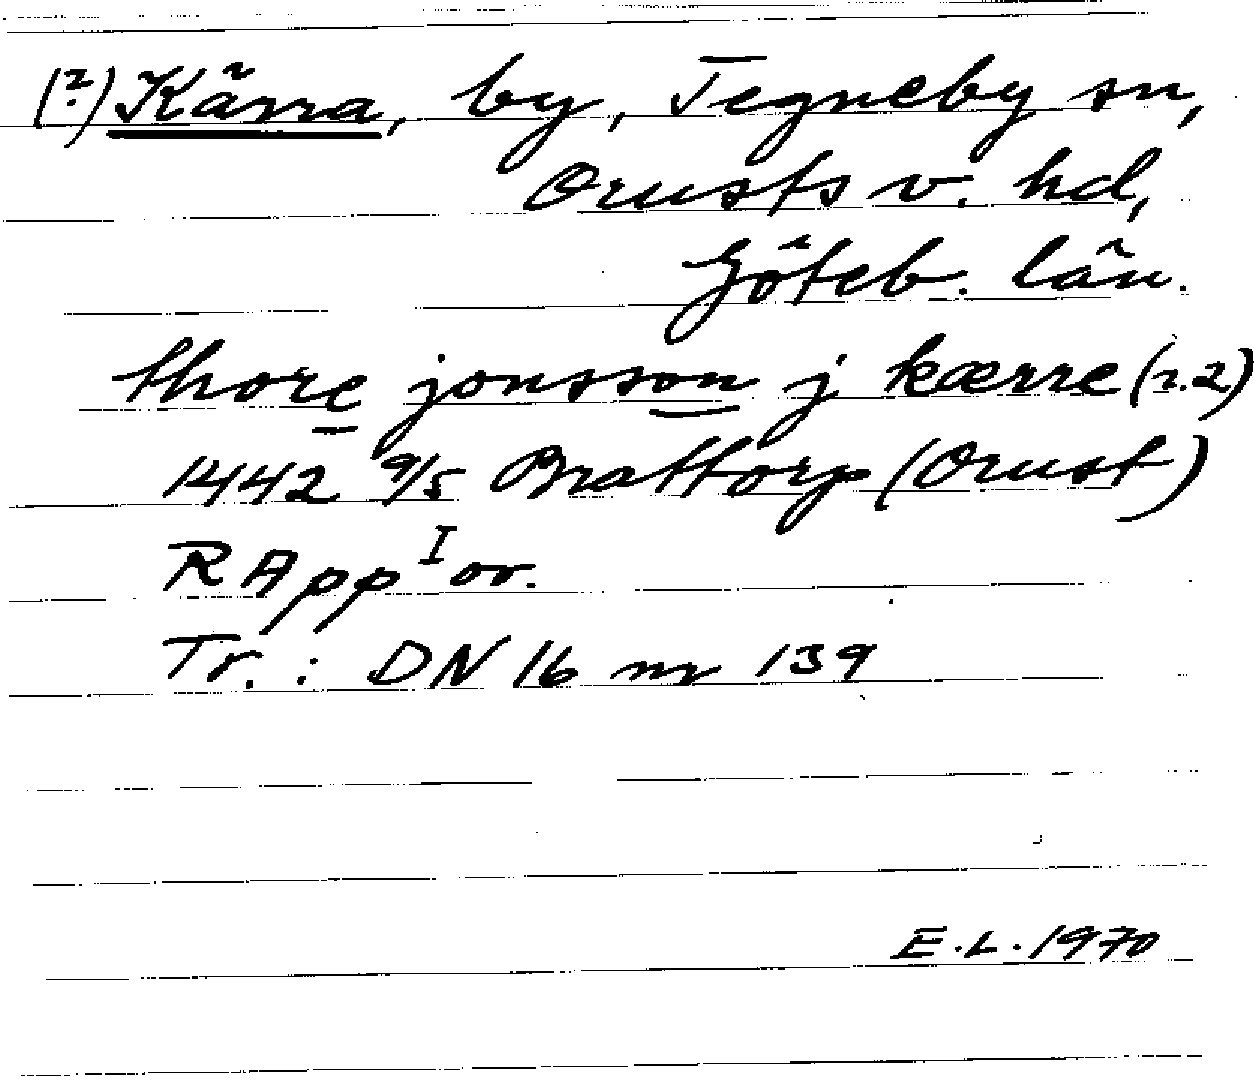 (?) Kärra, by, Tegneby sn,
Orusts v. hd,
Göteb. län.
thore jonsson j kærre (r.2)
1442 9/5 Brattorp (Orust)
RApp I or.
Tr.: DN 16 nr 139
E.L. 1970